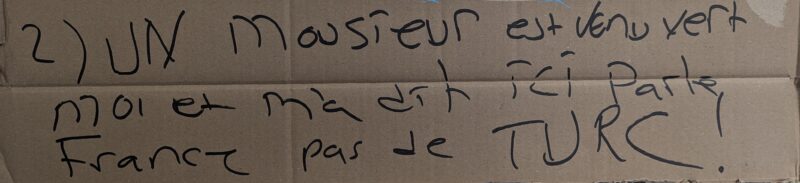 2) UN Mousieur est venu vert
moi et m'a dit ici Parle
France pas de TURC!